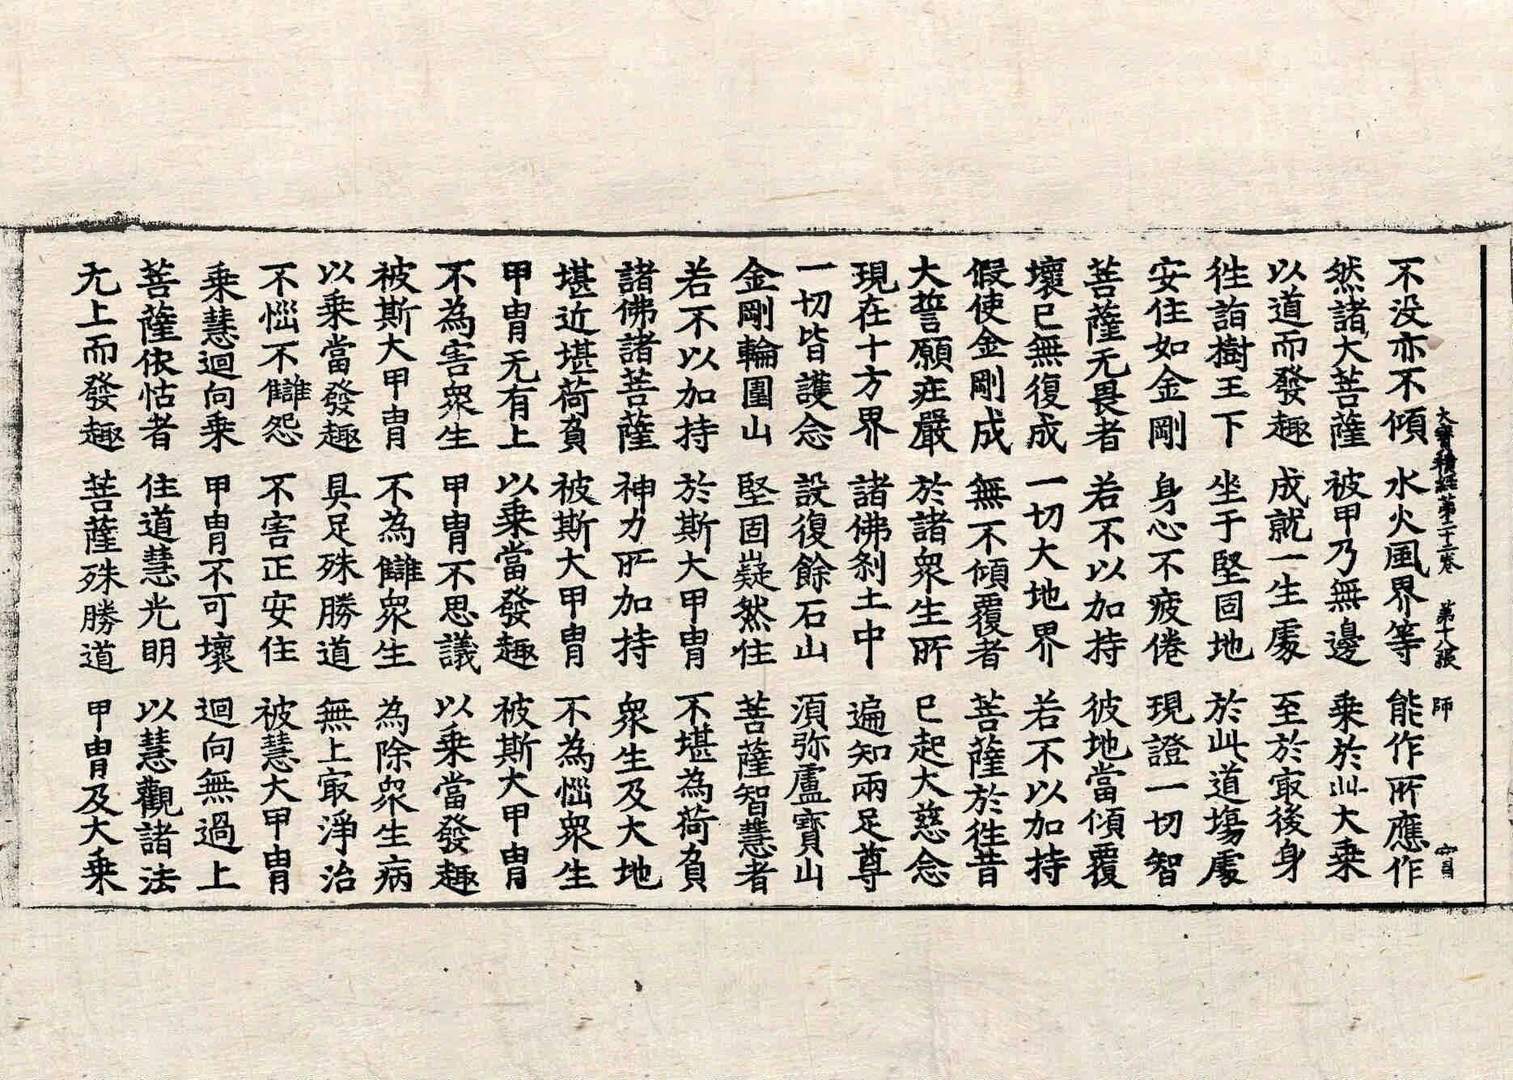 大寶積經第二十三卷 第十八張 師 宜
不没亦不傾 水火風界等 能作所應作
然諸大菩薩 被甲乃無邊 乘於此大乘
以道而發趣 成就一生處 至於㝡後身
徃詣樹王下 坐于堅固地 於此道場處
安住如金剛 身心不疲倦 現證一切智
菩薩无畏者 若不以加持 彼地當傾覆
壞已無復成 一切大地界 若不以加持
假使金剛成 無不傾覆者 菩薩於徃昔
大誓願疘嚴 於諸衆生所 已起大慈念
現在十方界 諸佛刹土中 遍知兩足尊
一切皆護念 設復餘石山 須弥盧寶山
金剛輪圍山 堅固嶷然住 菩薩智慧者
若不以加持 於斯大甲冑 不堪為荷負
諸佛諸菩薩 神力所加持 衆生及大地
堪近堪荷負 被斯大甲冑 不為惱衆生
甲冑无有上 以乘當發趣 被斯大甲冑
不為害衆生 甲冑不思議 以乘當發趣
被斯大甲冑 不為讎衆生 為除衆生病
以乘當發趣 具足殊勝道 無上㝡淨治
不惱不讎怨 不害正安住 被慧大甲冑
乘慧迴向乘 甲冑不可壞 迴向無過上
菩薩依怙者 住道慧光明 以慧觀諸法
无上而發趣 菩薩殊勝道 甲冑及大乘